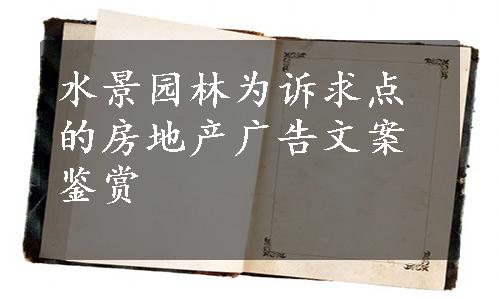 水景园林为诉求点
的房地产广告文案
鉴赏